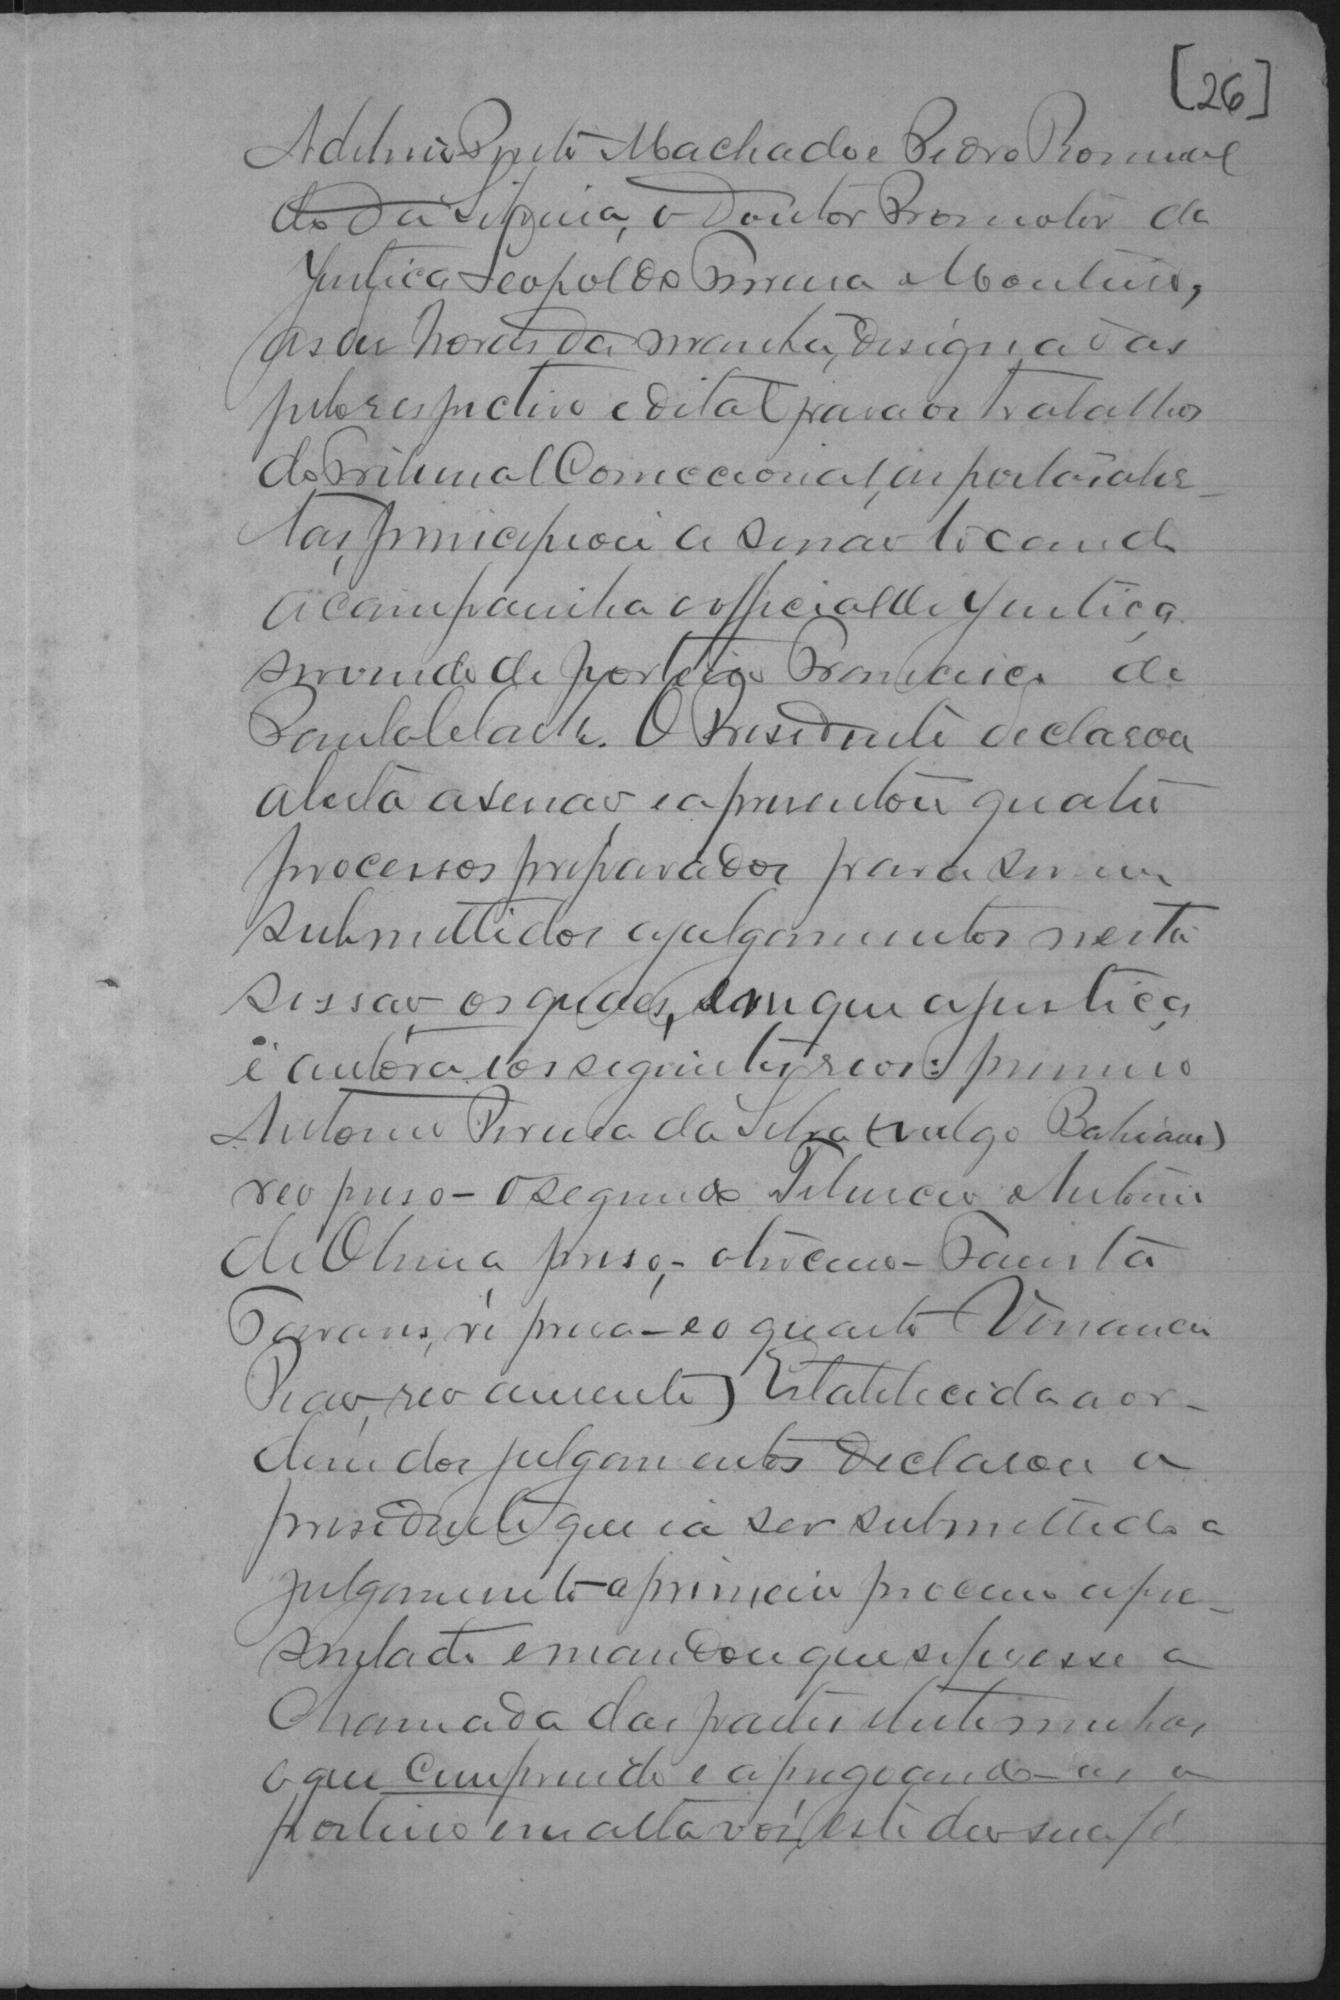 [26]
Adelino Preto Machado e Pedro Romual
do da Silveira, o Doutor Promotor da
Justiça Leopoldo Pereira Monteiro,
as dez horas da manhã, designadas
pelo respectivo edital para os trabalhos
do Tribunal Correccional, as portas aber-
tas, principiou a sessão tocando
a campainha o official de Justiça
servindo de porteiro Francisco de
O Presidente declarou
aberta a sessão e apresentou quatro
processos preparados para serem
submettidos a julgamentos nesta
sessão, os quaes, em que a justiça
é autora e os seguintes reos: primeiro
Antonio Pereira da Silva (vulgo Bahiano)
reo preso - O segundo Antonio
de Oliveira preso, - o terceiro - Fausta
Tavares, ré presa - e o quarto Venancio
reo ausente) Estabelecida a or-
dem dos julgamentos declarou o
presidente que ia ser submettido a
julgamento o primeiro processo apre-
sentado e mandou que se fizesse a
chamada das partes e testemunhas
o que cumprindo e apregoando-as o
porteiro em alta voz, este deu sua fé